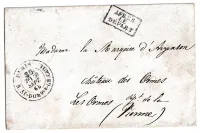 APRÈS
LE
DÉPART
Madame la Marquise d'Argenson
château des Ormes
Les Ormes Dépt de la
Vienne